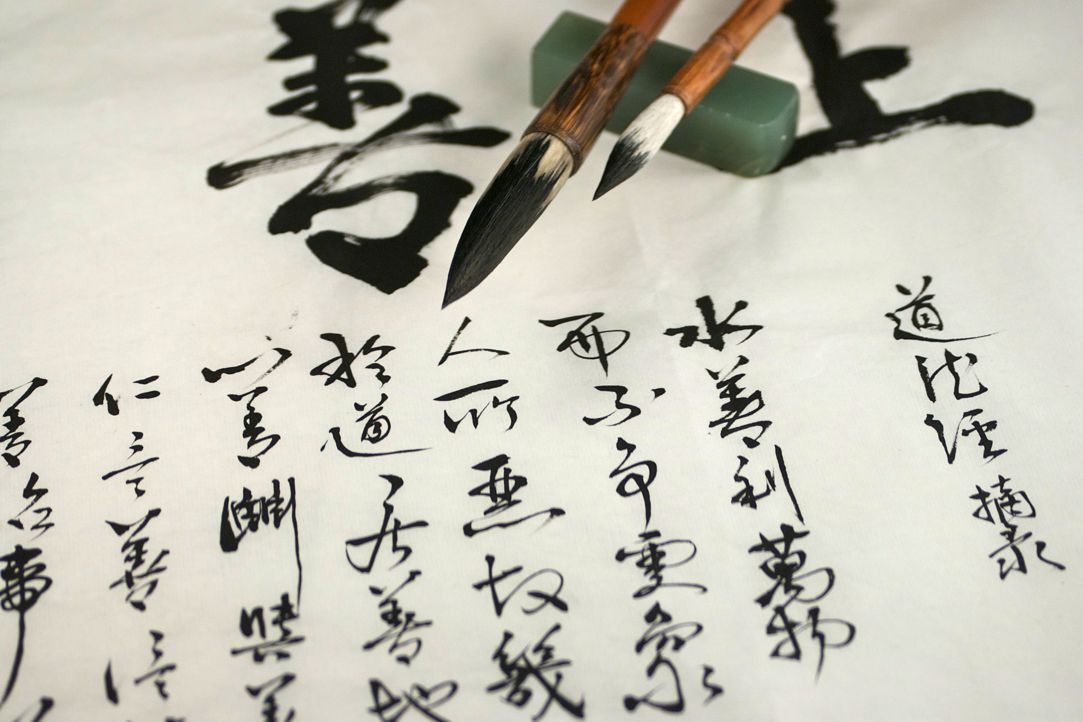 上善
道德經摘录
水善利萬物
而不争處衆
人所惡故幾
於道居善地
心善淵與善
仁言善信
善能事